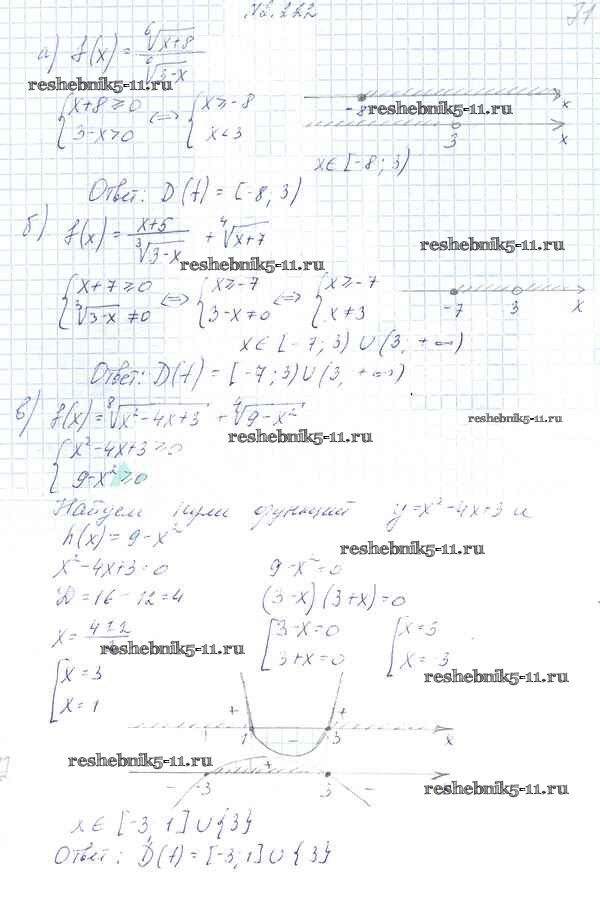 N2.222
31
а) f(x) = ⁶√(x+8) / ⁶√(3-x)
reshebnik5-11.ru
{ x+8 ≥ 0 <=> { x ≥ -8
{ 3-x > 0 { x < 3
-8 x
reshebnik5-11.ru
3 x
x ∈ [-8; 3)
Ответ: D(f) = [-8, 3)
б) f(x) = (x+5) / ³√(3-x) + ⁴√(x+7)
reshebnik5-11.ru
reshebnik5-11.ru
{ x+7 ≥ 0 <=> { x ≥ -7 <=> { x ≥ -7
{ ³√(3-x) ≠ 0 { 3-x ≠ 0 { x ≠ 3
-7 3 x
x ∈ [-7; 3) ∪ (3, +∞)
Ответ: D(f) = [-7; 3) ∪ (3, +∞)
в) f(x) = ⁸√(x²-4x+3) + ⁴√(9-x²)
reshebnik5-11.ru
reshebnik5-11.ru
{ x²-4x+3 ≥ 0
{ 9-x² ≥ 0
Найдем нули функций y=x²-4x+3 и
h(x) = 9-x²
reshebnik5-11.ru
x²-4x+3=0 9-x²=0
D=16-12=4 (3-x)(3+x)=0
x = (4±2)/2 [ 3-x=0 [ x=3
reshebnik5-11.ru [ 3+x=0 [ x=-3
[ x=3
[ x=1
reshebnik5-11.ru
+ +
1 - 3 x
reshebnik5-11.ru
+
- -3 3 -
reshebnik5-11.ru
x ∈ [-3, 1] ∪ {3}
Ответ: D(f) = [-3; 1] ∪ {3}